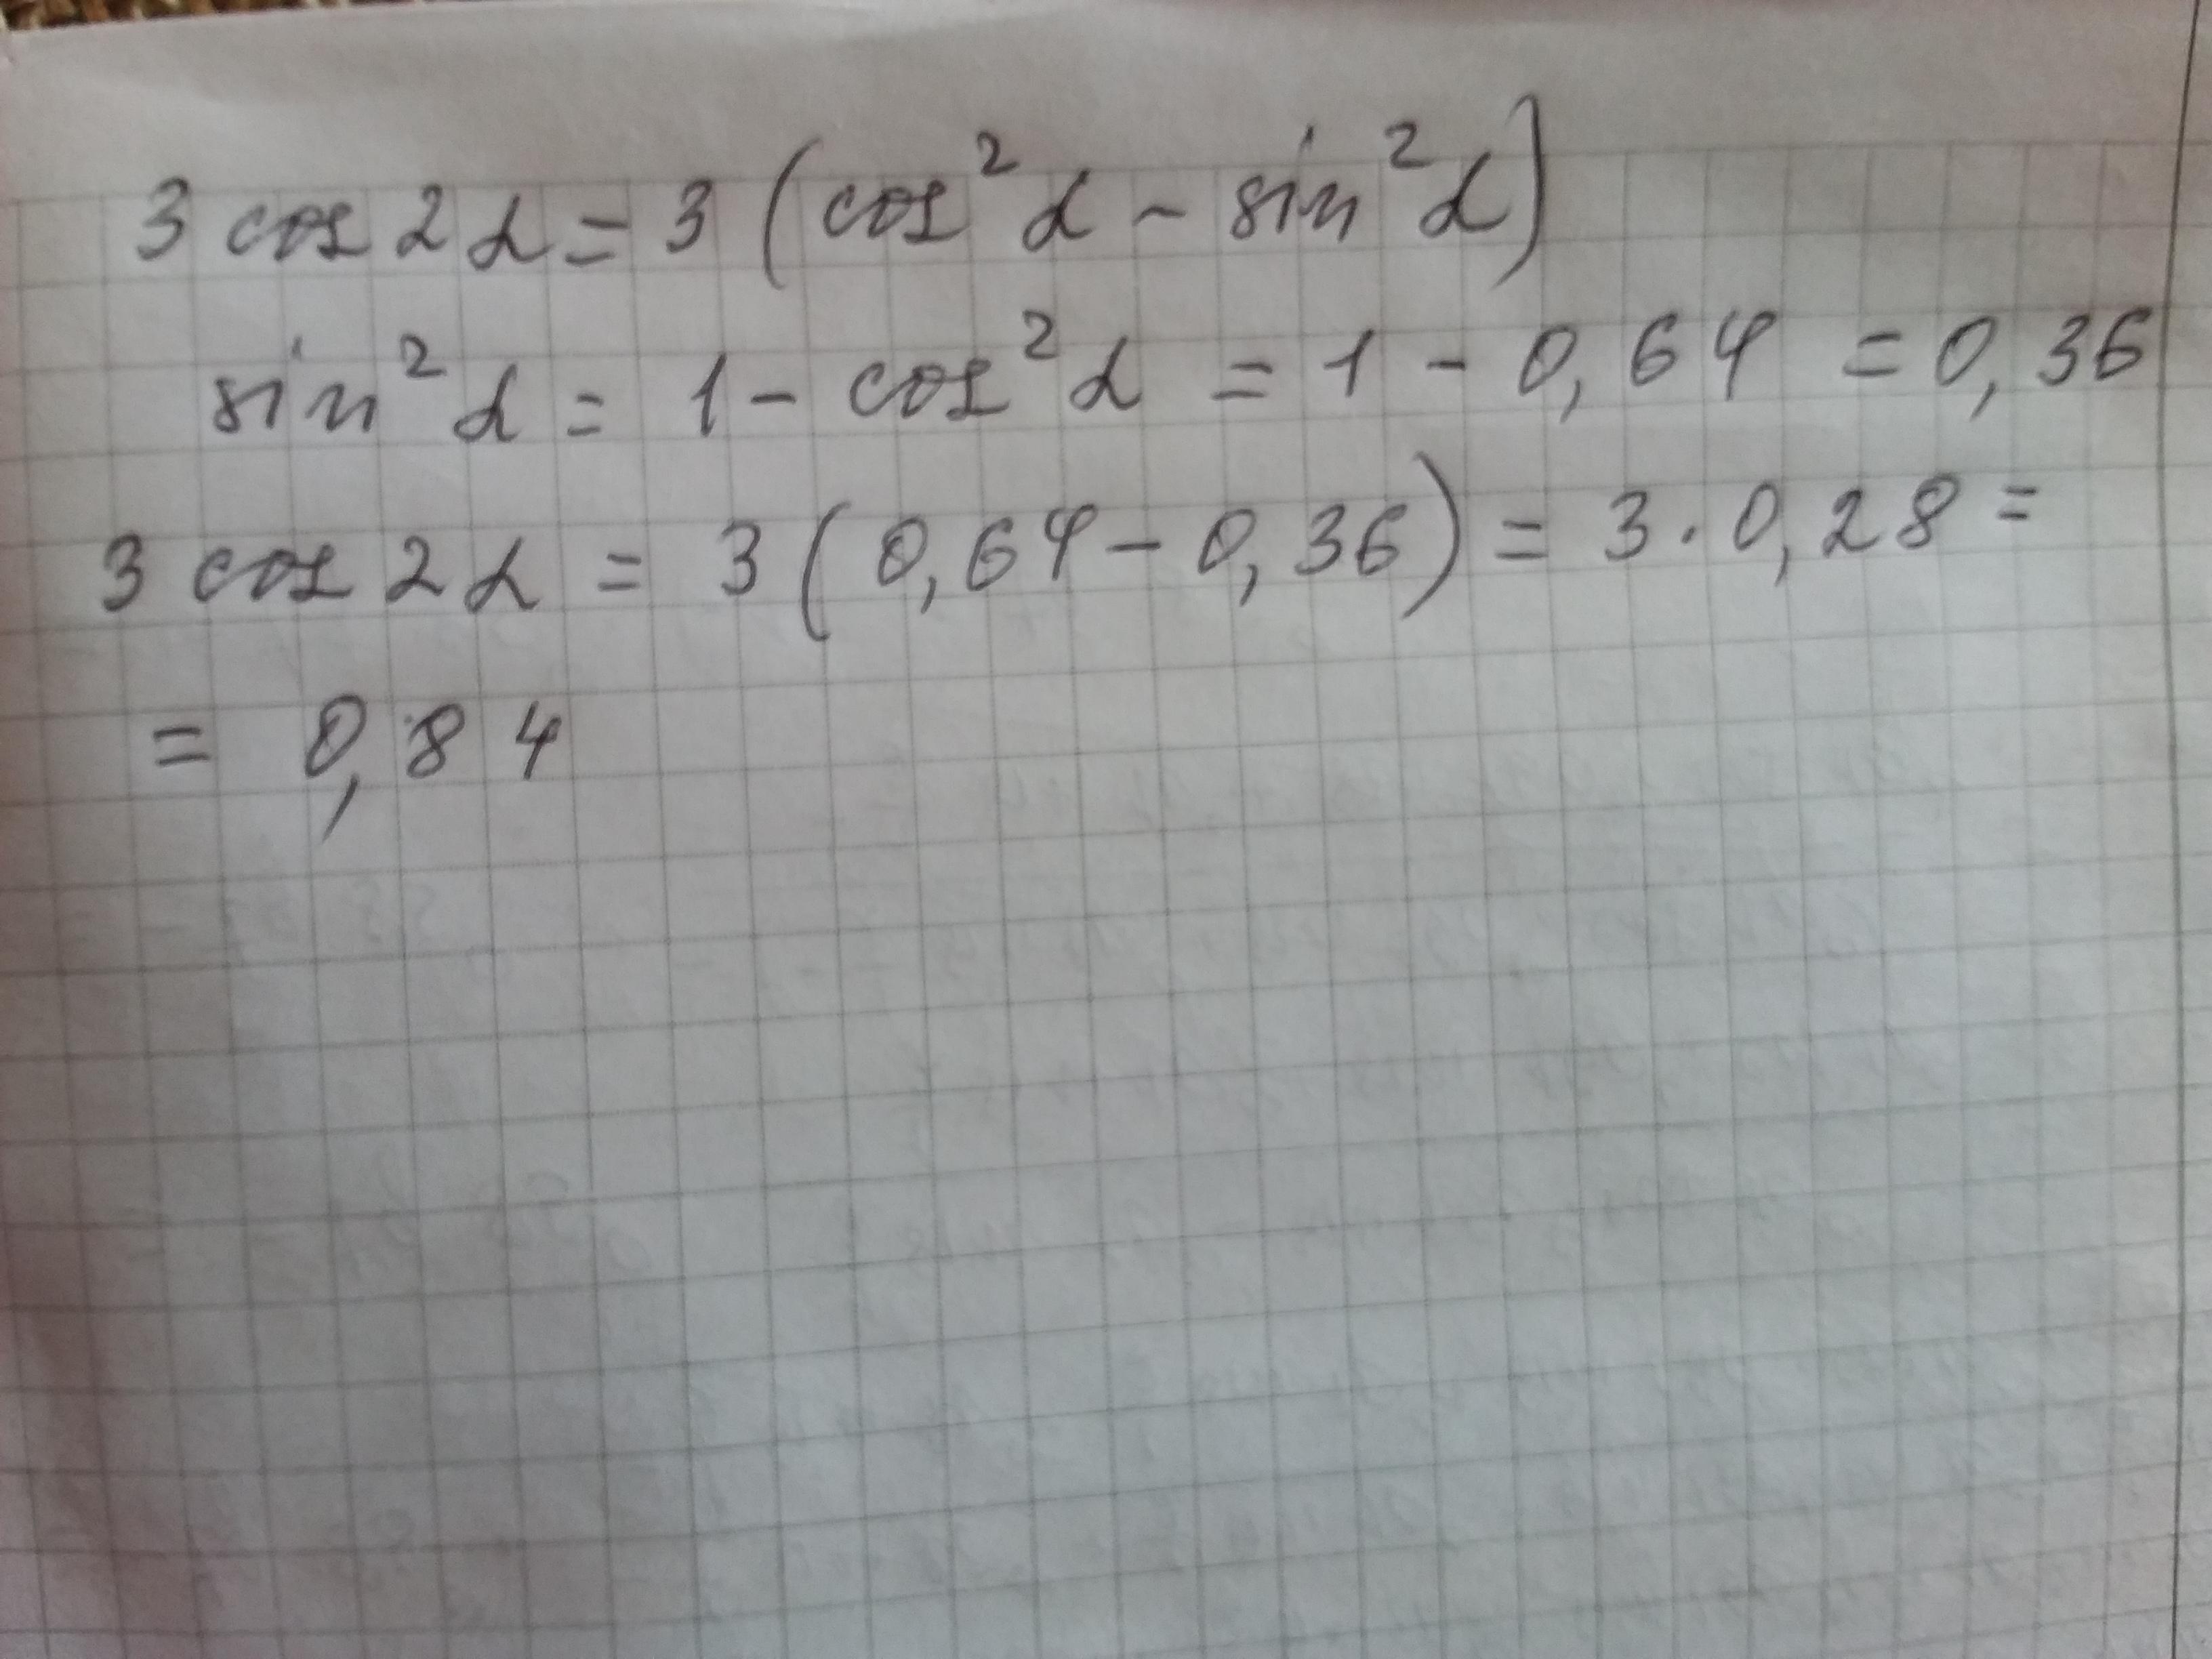 3 cos 2α = 3 (cos²α - sin²α)
sin²α = 1 - cos²α = 1 - 0,64 = 0,36
3 cos 2α = 3 (0,64 - 0,36) = 3 · 0,28 =
= 0,84